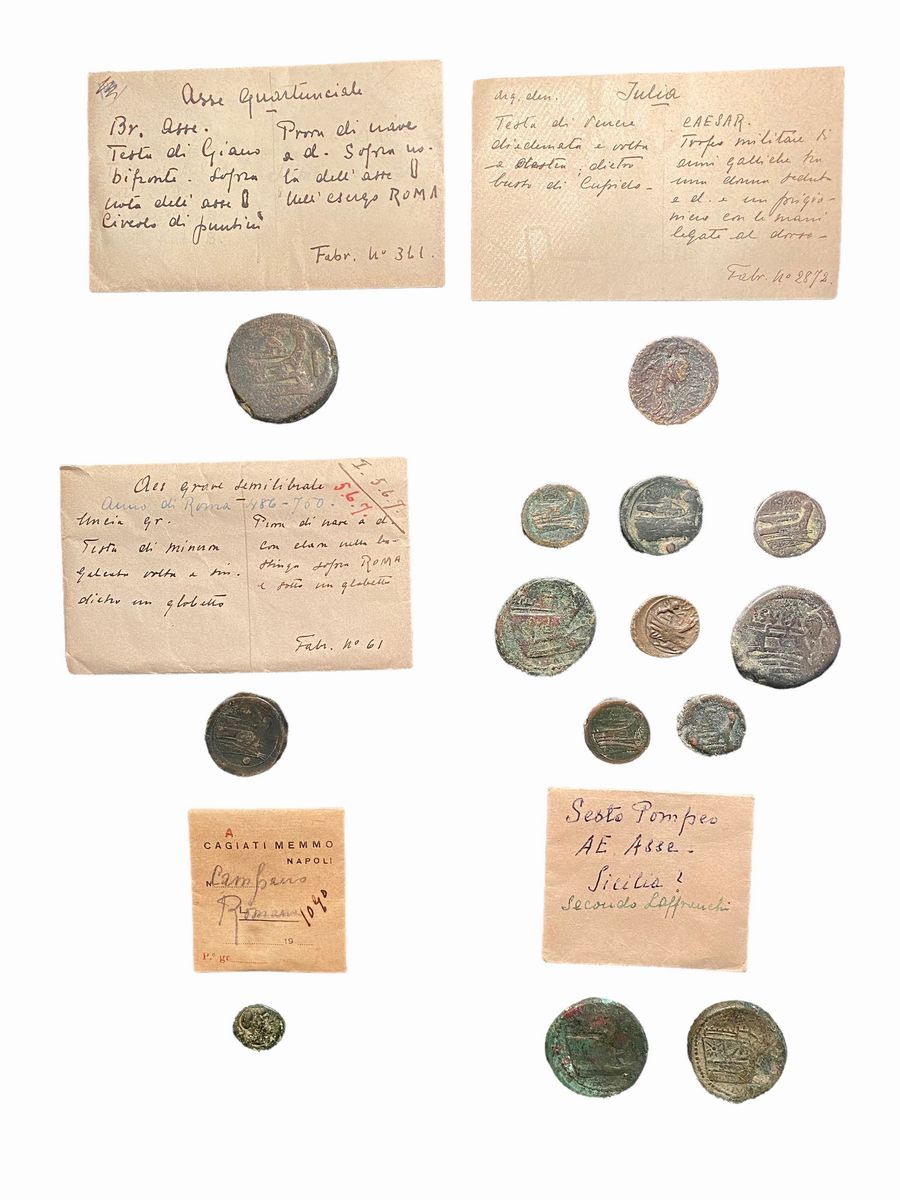 Asse quartunciale
Br. Asse.
Testa di Giano
bifronte. Sopra
nota dell' asse
Circolo di puntini
Prora di nave
a d. Sopra no-
ta dell' asse
nell' esergo ROMA
Fabr. No 361.
Arg. den. Iulia
Testa di Venere
diademata e volta
a destra, dietro
busto di Cupido-
CAESAR.
Trofeo militare di
armi galliche tra
una donna seduta
a d. e un prigio-
niero con le mani
legate al dorso-
Fabr. No 2872.
Aes grave semilibrale
Anno di Roma 486-700.
I. 5.6.7.
5.6.7.
Uncia gr.
Testa di minerva
galeata volta a sin.
dietro un globetto
Prora di nave a d.
con clava nella
sopra ROMA
e sotto un globetto
Fabr. No 61
A
CAGIATI MEMMO
NAPOLI
N Campano
Romana
1090
19
P.o gr.
Sesto Pompeo
AE Asse-
Sicilia?
Secondo Laffranchi